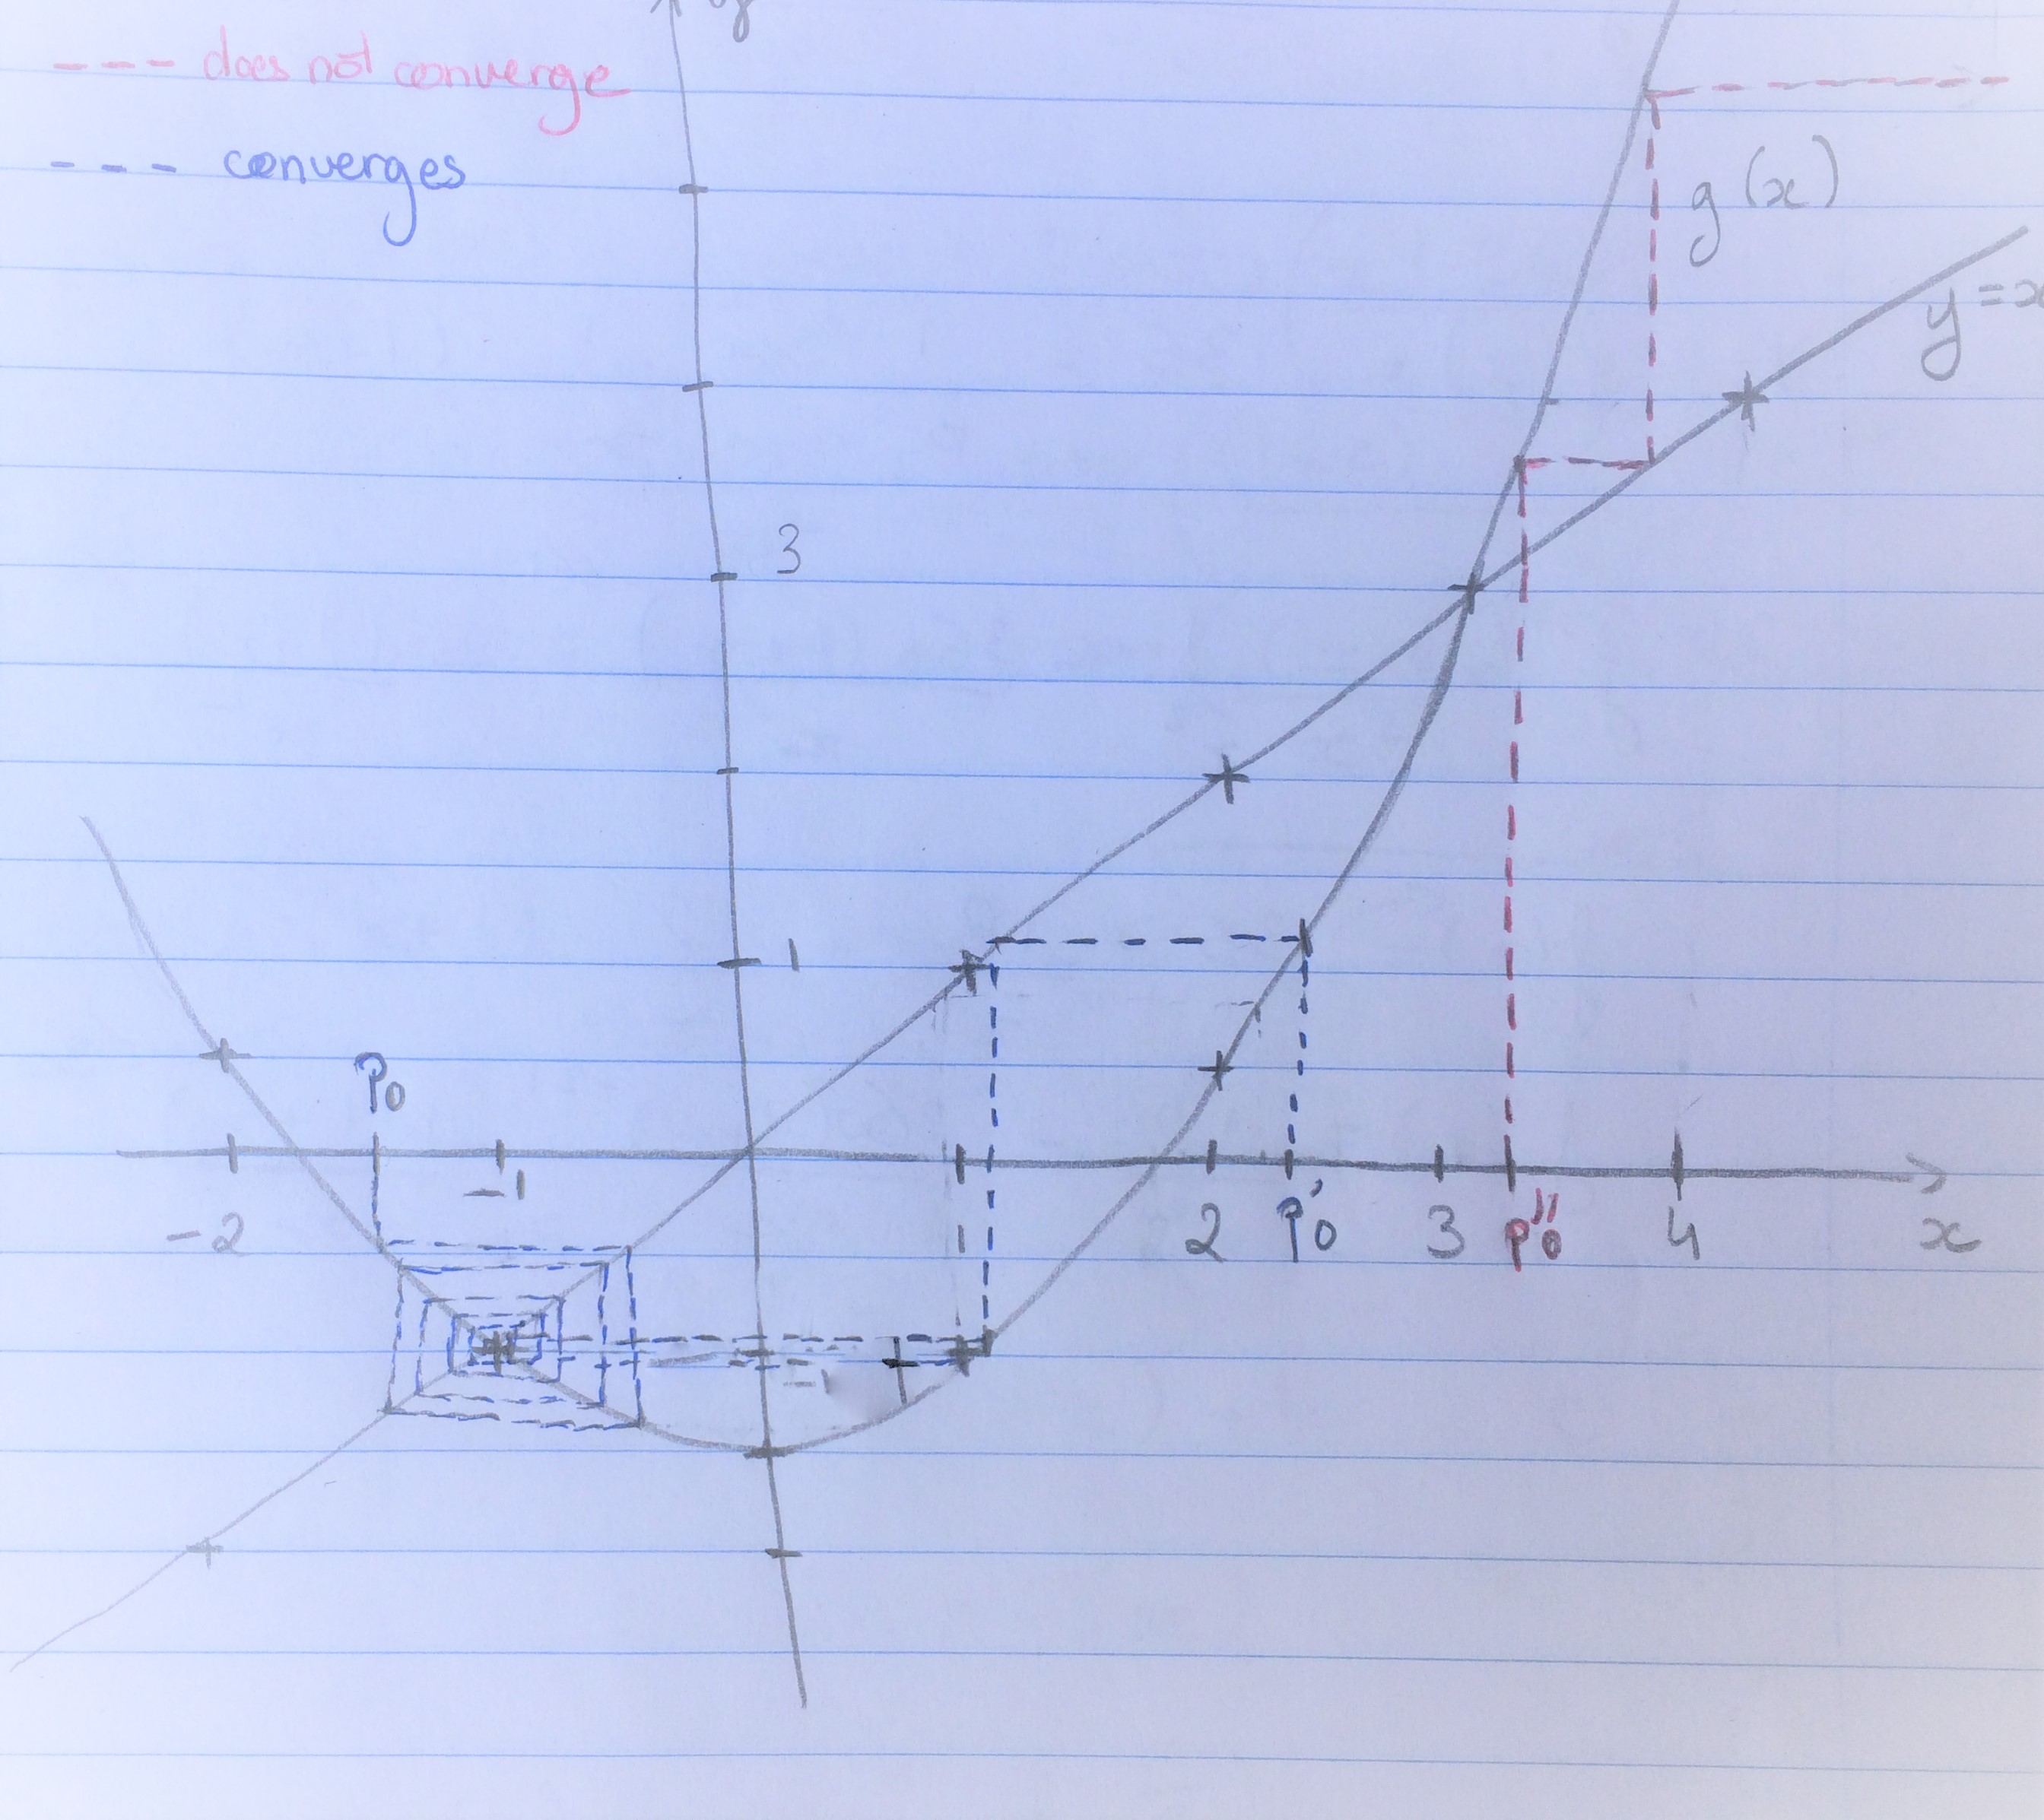 y
--- does not converge
--- converges
g(x)
y=x
3
1
p₀
-1
-2
1
2
p₀'
3
p₀''
4
x
-1